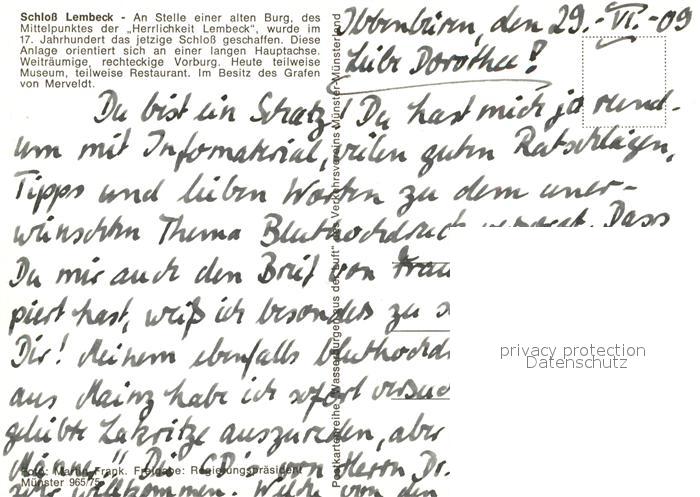 Schloß Lembeck - An Stelle einer alten Burg, des
Mittelpunktes der „Herrlichkeit Lembeck", wurde im
17. Jahrhundert das jetzige Schloß geschaffen. Diese
Anlage orientiert sich an einer langen Hauptachse.
Weiträumige, rechteckige Vorburg. Heute teilweise
Museum, teilweise Restaurant. Im Besitz des Grafen
von Merveldt.
Ibbenbüren, den 29.-VI.-09
Liebe Dorothea!
Du bist ein Schatz! Du hast mich ja rund-
um mit Infomaterial, vielen guten Ratschlägen,
Tipps und lieben Worten zu dem uner-
wünschten Thema Bluthochdruck versorgt. Dass
Du mir auch den Brief von Frau
piert hast, weiß ich besonders zu
Dir! Meinem ebenfalls bluthochd
aus Mainz habe ich sofort versuc
geliebte Lakritze auszureden, aber
Die CD's von Herrn Dr.
willkommen. von den
Foto: Martin Frank. Freigabe: Regierungspräsident
Münster 965/75
Postkartenreihe „Wasserburgen aus der Luft" des Verkehrsvereins Münster-Münsterland
privacy protection
Datenschutz